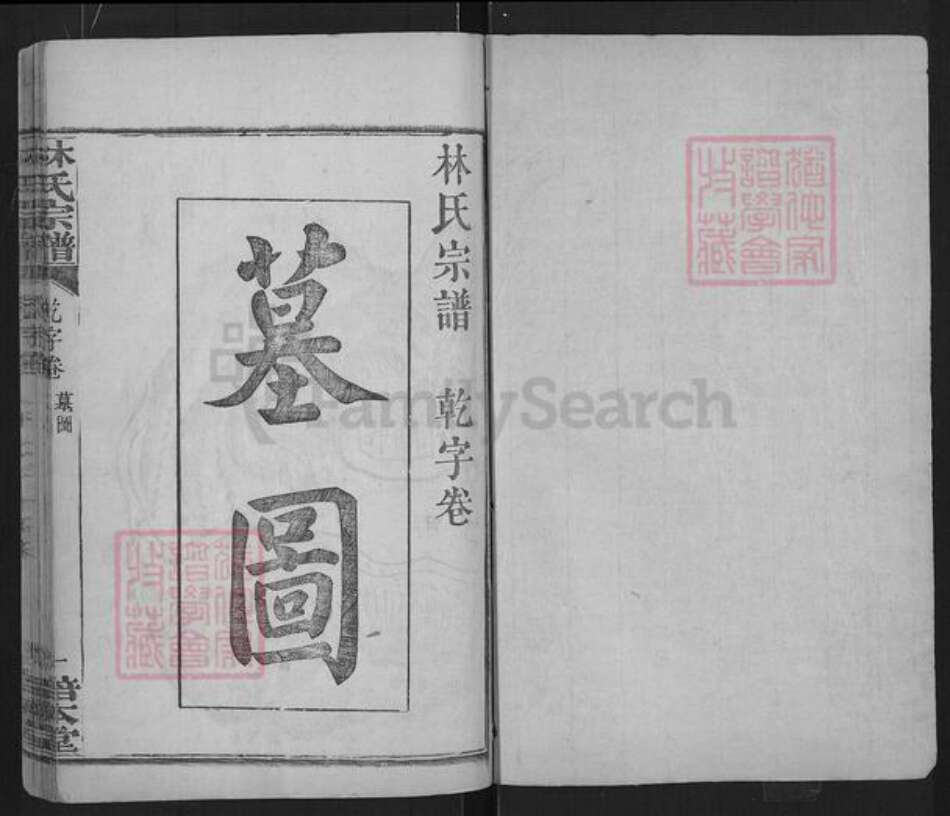 林氏宗譜 乾字卷
墓圖
林氏宗譜
乾字卷 墓圖
一
堂
猶他家
譜學會
珍藏
猶他家
譜學會
珍藏
FamilySearch